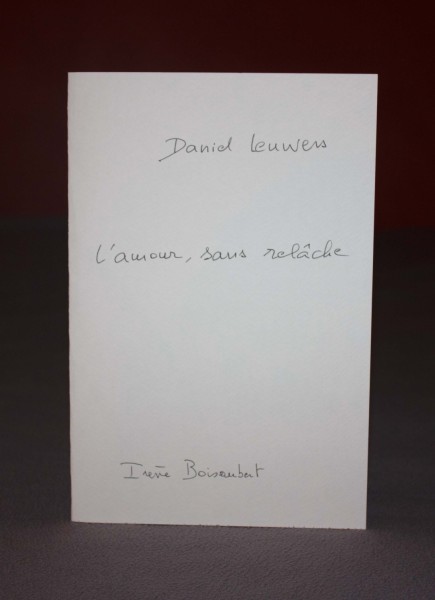 Daniel Leuwers
l'amour, sans relâche
Irène Boisaubert